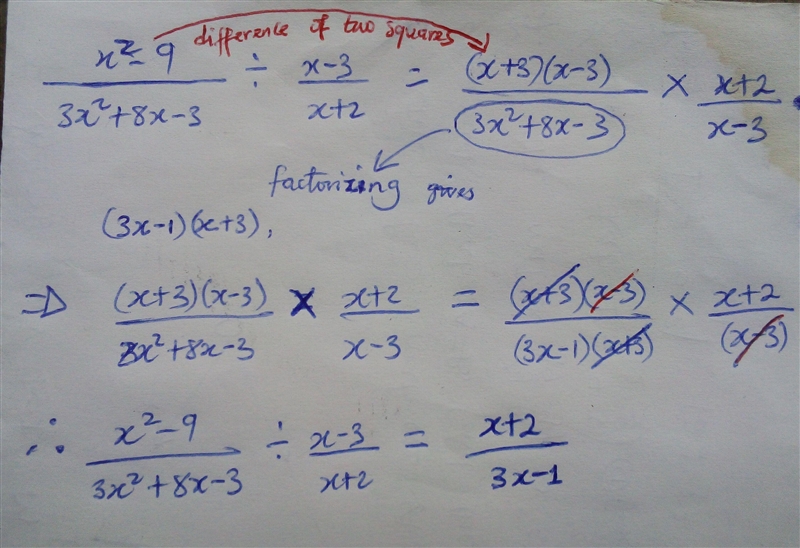 difference of two squares
x²-9 / 3x²+8x-3 ÷ x-3 / x+2 = (x+3)(x-3) / 3x²+8x-3 × x+2 / x-3
factorizing gives
(3x-1)(x+3),
⇒ (x+3)(x-3) / 3x²+8x-3 × x+2 / x-3 = (x+3)(x-3) / (3x-1)(x+3) × x+2 / (x-3)
∴ x²-9 / 3x²+8x-3 ÷ x-3 / x+2 = x+2 / 3x-1